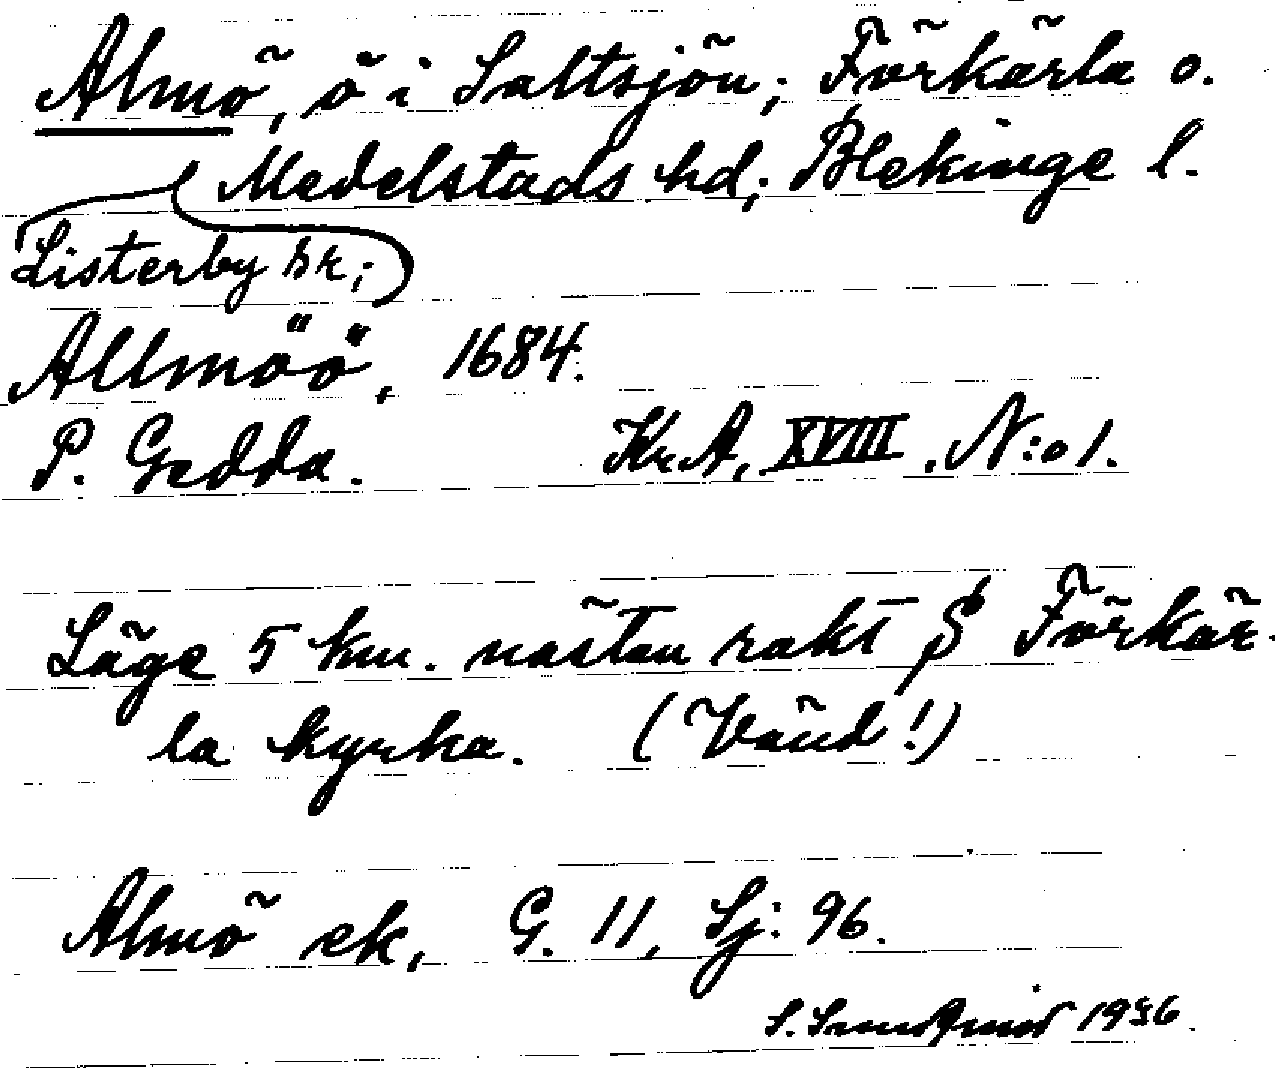 Almö, ö i Saltsjön; Förkärla o.
Listerby sk;
Medelstads hd; Blekinge l.
Allmöö, 1684.
P. Gedda. Kr.A. XVIII. N:o 1.
Läge 5 km. nästan rakt S Förkär-
la kyrka. (Vänd!)
Almö ek, G. 11, Sj: 96.
S. 1936.